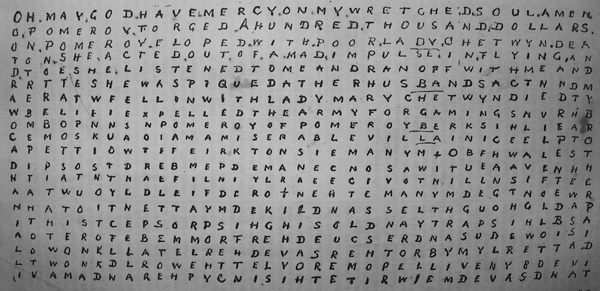 OH.MAY.GOD.HAVE.MERCY.ON.MY.WRETCHED.SOUL.AMEN
O.POMEROY.TORGED.A.HUNDRED.THOUSAND.DOLLARS.
ON.POMEROY.ELOPED.WITH.POOR.LADY.CHETWYN.DEA
TON.SHE.ACTED.OUT.OF.A.MAD.IMPULSE.IN.FLYING.AN
D.TOESHE.LISTENEDTOMEANDRANOFFWITHMEAND
RRTTESHEWASPIQUEDATHERHUSBANDSACTNDM
AERATWFELLINWITHLADYMARYCHETWYNDIEDTY
WBELIEIEXPELLEDTHEARMYFORGAMINGSNVRHB
OMBOPNNSNPOMEROYOFPOMEROYBERKSIHLIEAR
CEMOSKUAOIAMAMISERABLEVILLAINICEELPTO
APETTIOWTFFEIRKTONSIEMANYM+OBFHWALEST
DIPSOSTDREBMEPDEMANECNOSAWITUEAVENHH
INTATNTHALFILNIYLRAEEECIVOTNILLNSIFTEE
AATWUOYLDLEIFDEROTNEHTEMANYMDEGTNOEWR
NHATOITNETTAYMDEKILDNASSELTHGUOHGLDAP
ITHISTCEPSORPSIHGHISOLDNAYTRAPSIHLBSA
AOTEROFEBEMMORFREHDEUCSERDNASUDEWOISI
LOWONKLLATELREHDEVASREHTORBYMYLRETTAD
LTWONKDLROWEHTTELYOREMOPELLIVENYBDEVI
(IVAMADNAREHPYCNISIHTETIRWIEMDEVASDNAT